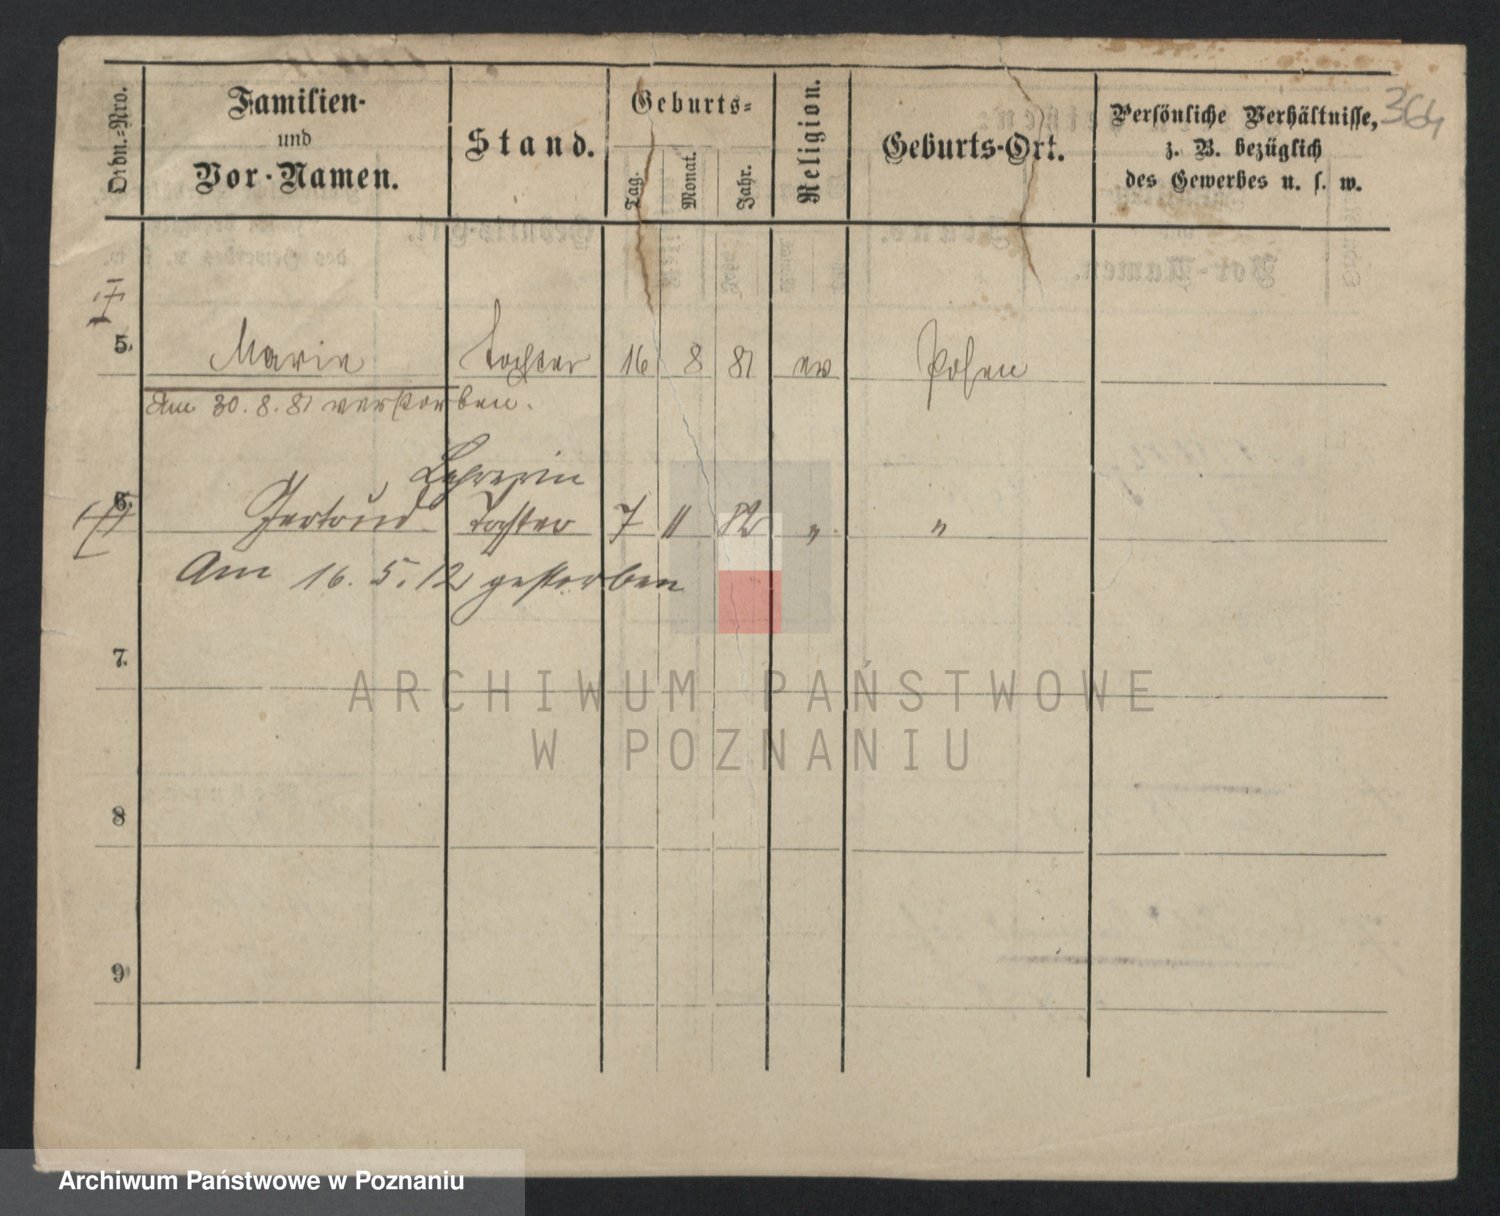 364
Ordn.-Nro.
Familien-
und
Vor-Namen.
Stand.
Geburts-
Tag.
Monat.
Jahr.
Religion.
Geburts-Ort.
Persönliche Verhältnisse,
z. B. bezüglich
des Gewerbes u. s. w.
5. Marie Tochter 16 8 81 ev Posen
Am 30. 8. 81 verstorben.
Lehrerin
6. Gertrud Tochter 7 11 82 " "
Am 16. 5. 12 gestorben
7.
8
9
ARCHIWUM PAŃSTWOWE
W POZNANIU
Archiwum Państwowe w Poznaniu